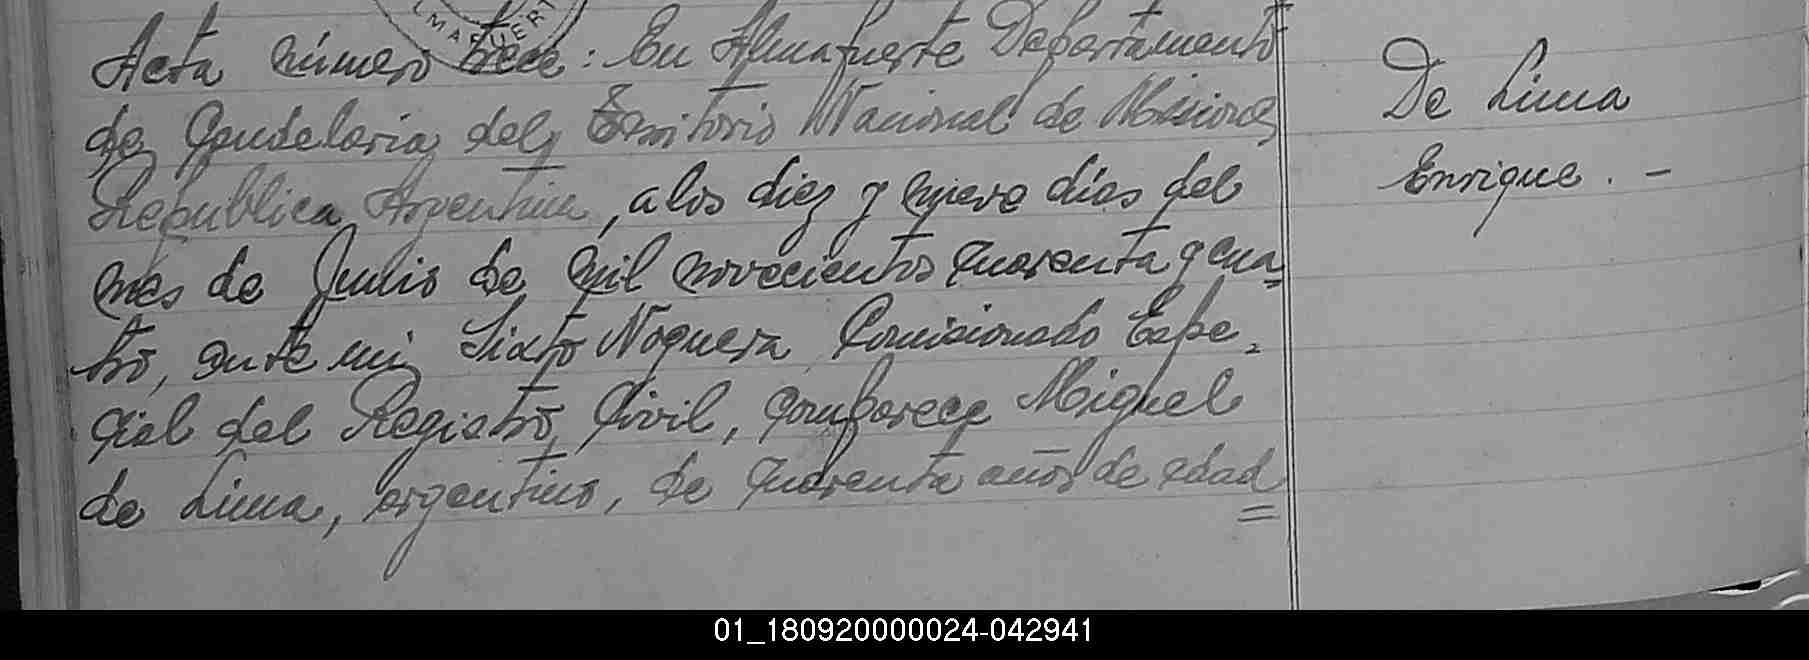 LMAFUERT
Acta número trece: En Almafuerte Departamento
de Candelaria del Territorio Nacional de Misiones
Republica Argentina, a los diez y nueve días del
mes de Julio de mil novecientos cuarenta y cua=
tro, ante mi Sixto Noguera Comisionado Espe=
cial del Registro Civil, comparece Miguel
de Lima, argentino, de cuarenta años de edad
=
De Lima
Enrique. -
01_180920000024-042941